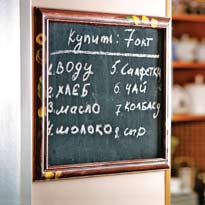 Купить: 7 окт
1. ВОДУ 5. Салфетки
2. ХЛЕБ 6. ЧАЙ
3. масло 7. КОЛБАСУ
4. молоко 8. сыр